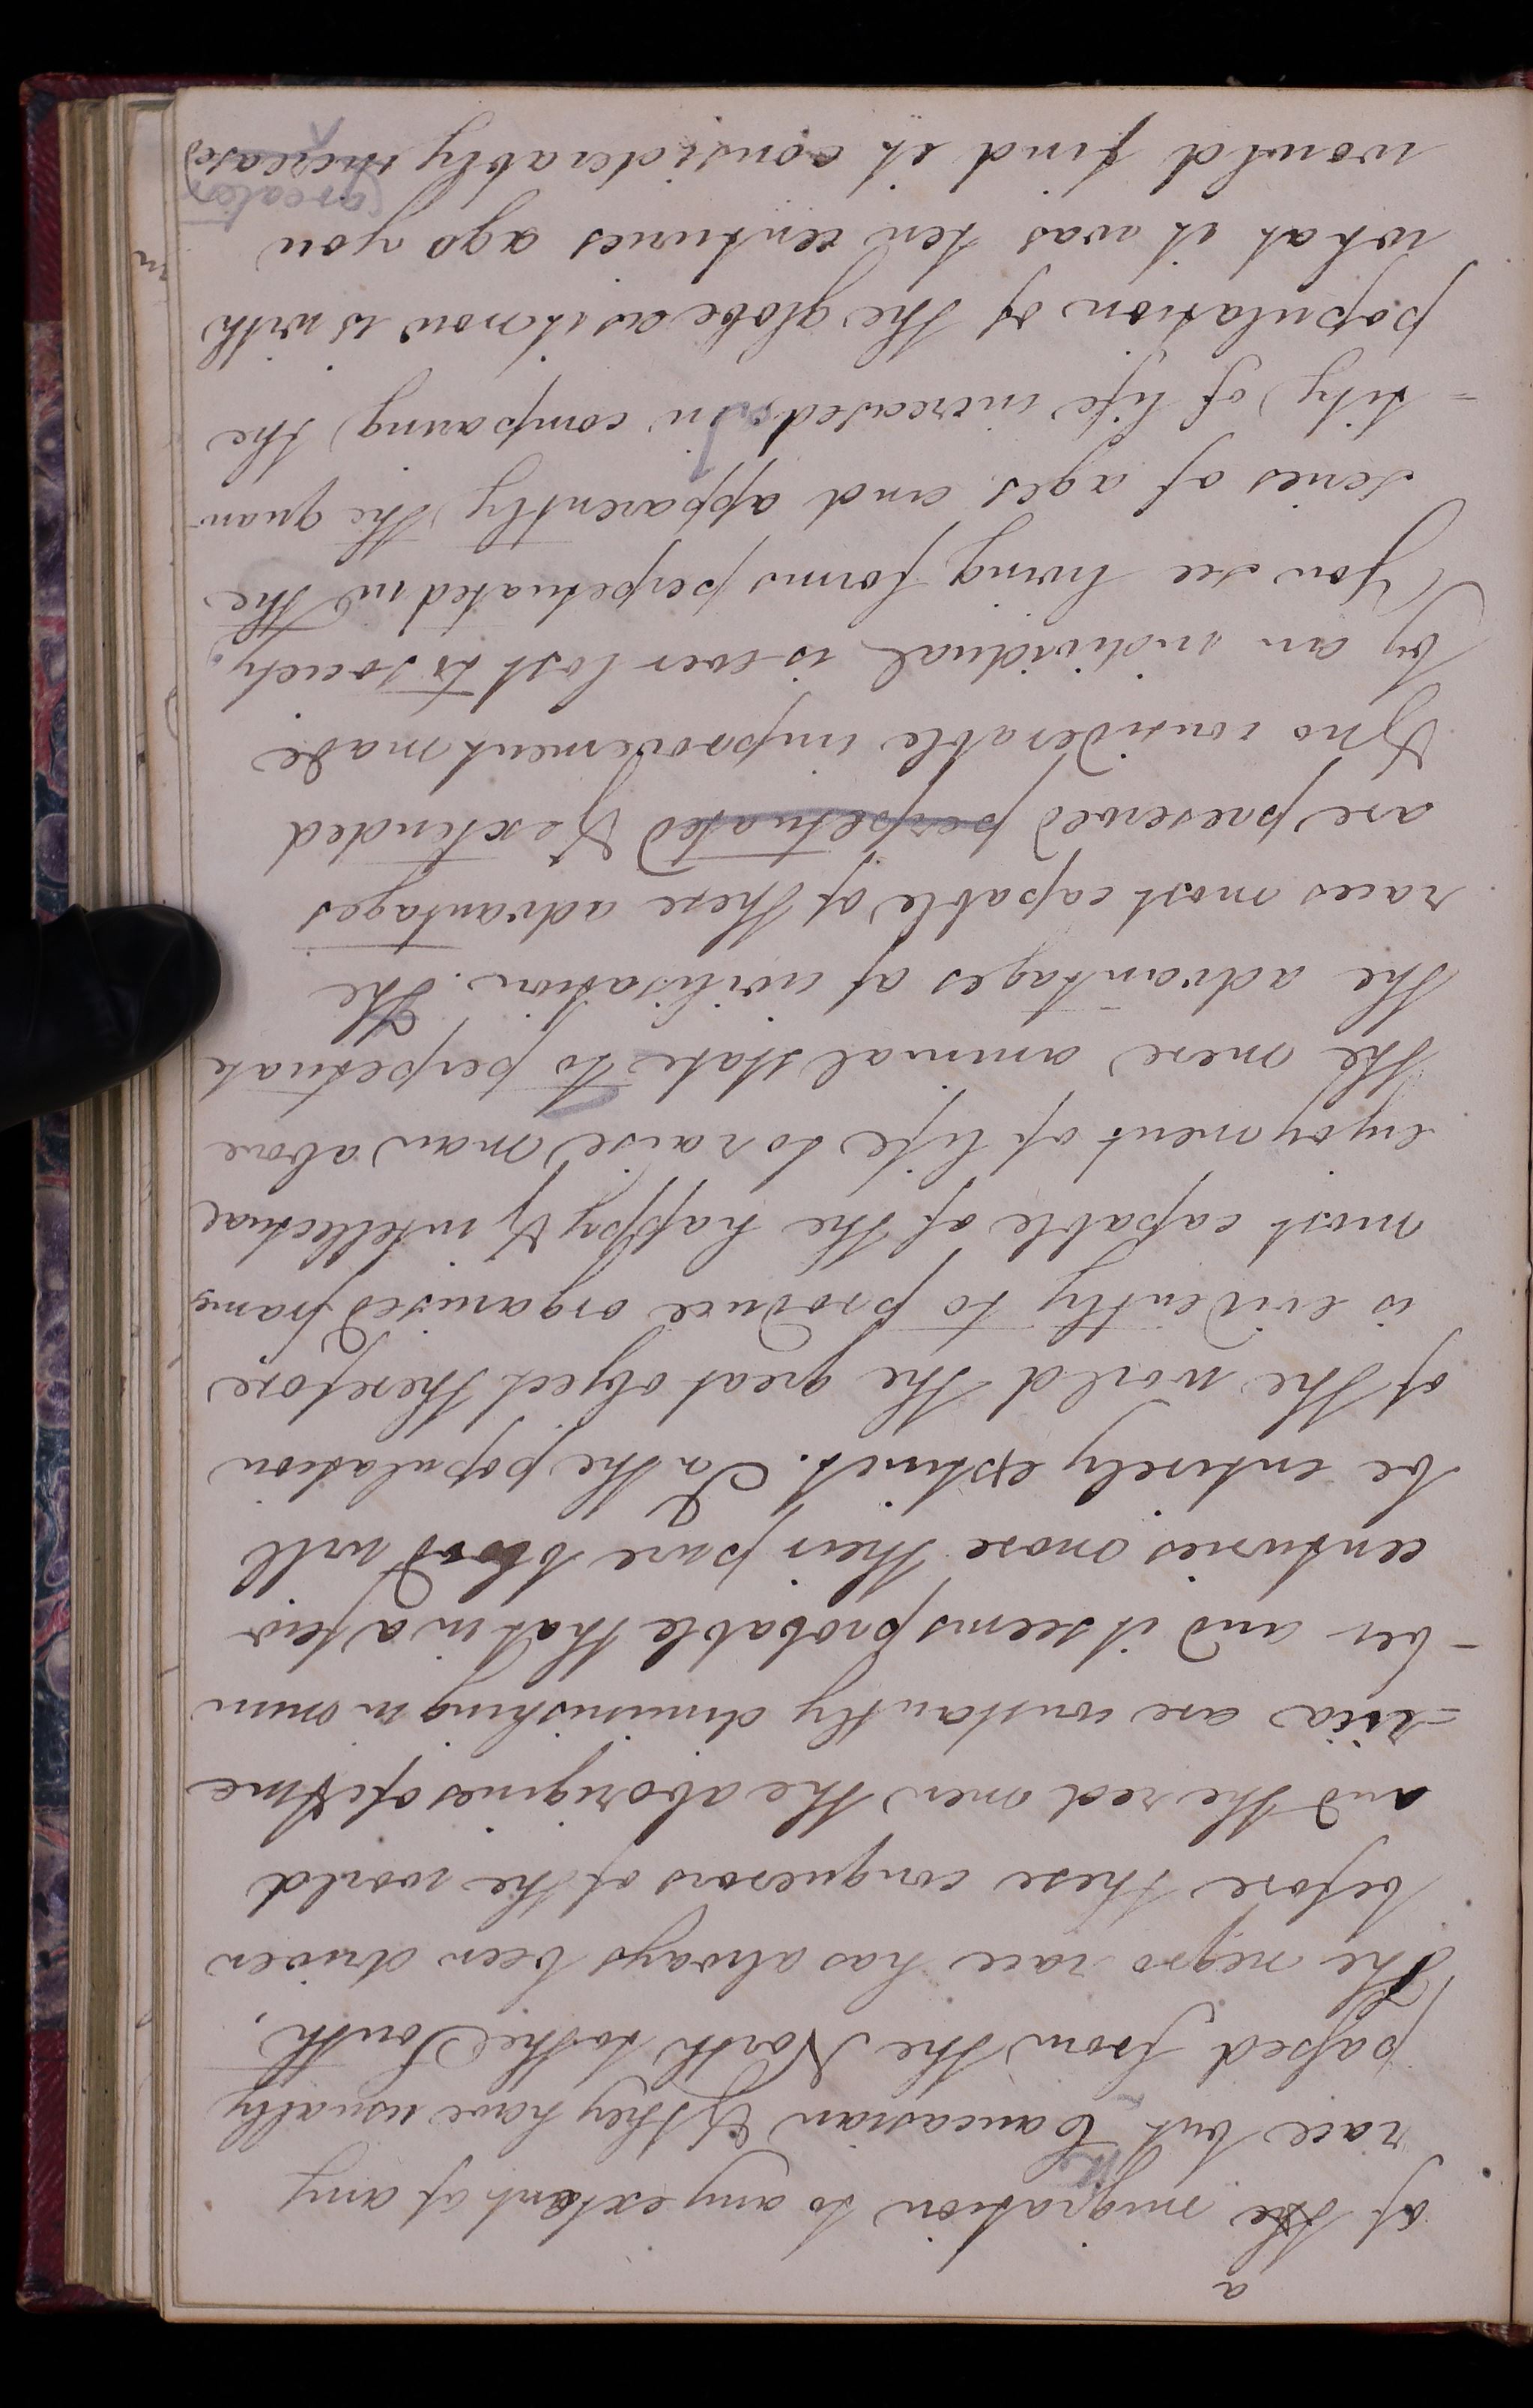 a
of the migration to any extent of any
the
race but Caucasian & they have usually
passed from the North to the South,
The negro race has always been driven
before these conquerors of the world
and the red men the aborigines of Ame
=rica are constantly diminishing in num
-ber and it seems probable that in a few
centuries more their pure blood will
be entirely extinct. In the population
of the world the great object therefore
is evidently to produce organised frames
most capable of the happy & intellectual
enjoyment of life to raise man above
the mere animal state to perpetuate
the advantages of civilisation. The
races most capable of these advantages
are preserved perpetuated & extended
& no considerable improvement made
by an individual is ever lost to society.
You see living forms perpetuated in the
series of ages and apparently the quan-
-tity of life increased. In comparing the
population of the globe as it now is with
what it was ten centuries ago you
greater
would find it considerably increased